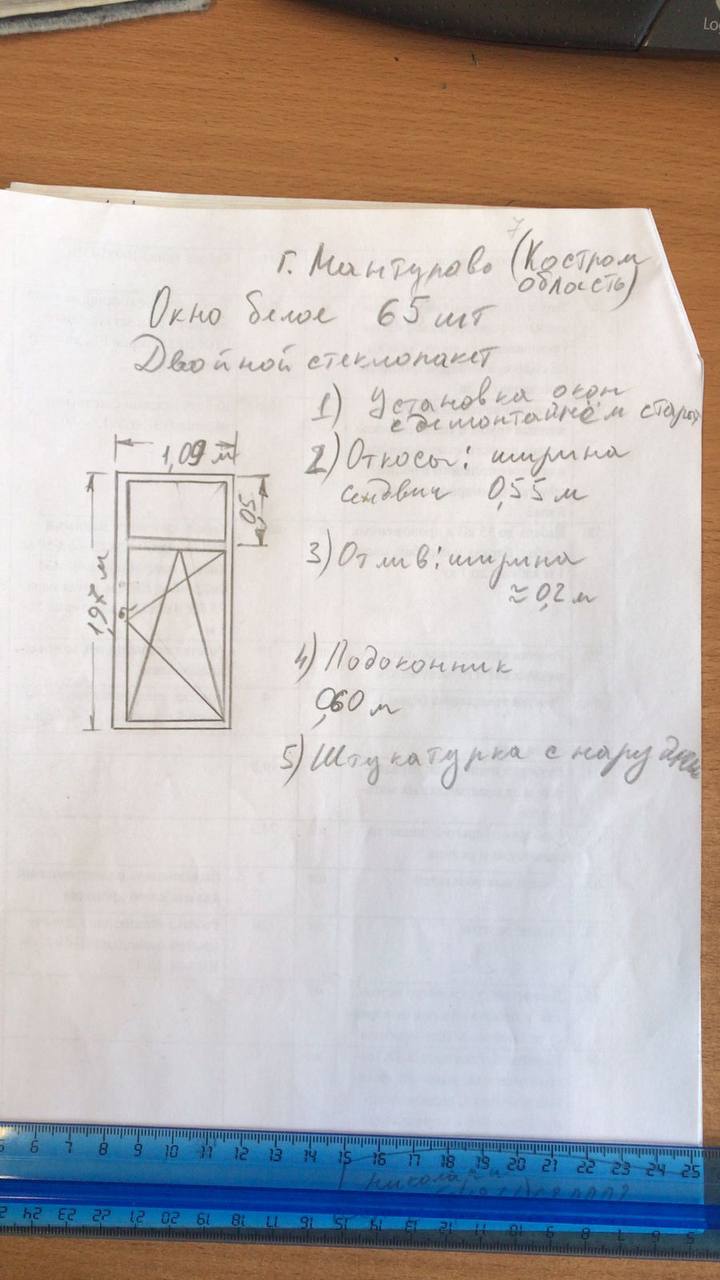 г. Мантурово (Костром
область)
Окно белое 65 шт
Двойной стеклопакет
1) Установка окон
с демонтажём стары
2) Откосы: ширина
сендвич 0,55 м
3) Отлив: ширина
≈ 0,2 м
4) Подоконник
0,60 м
5) Штукатурка с наружн
1,09 м
0,5
1,97 м
Log
5 6 7 8 9 10 11 12 13 14 15 16 17 18 19 20 21 22 23 24 25